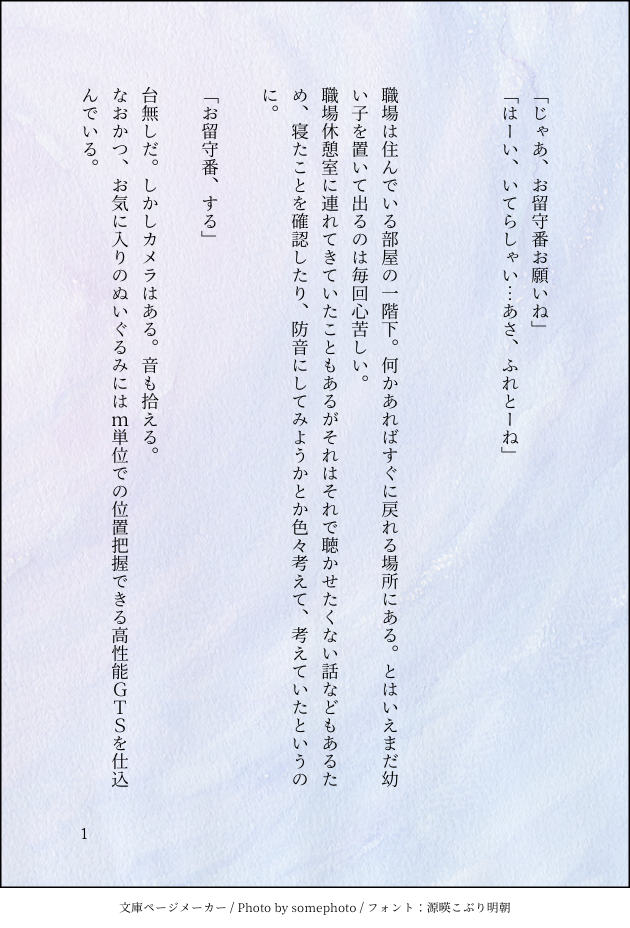 「じゃあ、お留守番お願いね」
「はーい、いてらしゃい…あさ、ふれとーね」
職場は住んでいる部屋の一階下。何かあればすぐに戻れる場所にある。とはいえまだ幼
い子を置いて出るのは毎回心苦しい。
職場休憩室に連れてきていたこともあるがそれはそれで聴かせたくない話などもあるた
め、寝たことを確認したり、防音にしてみようかとか色々考えて、考えていたというの
に。
「お留守番、する」
台無しだ。しかしカメラはある。音も拾える。
なおかつ、お気に入りのぬいぐるみにはｍ単位での位置把握できる高性能ＧＴＳを仕込
んでいる。
1
文庫ページメーカー / Photo by somephoto / フォント：源暎こぶり明朝